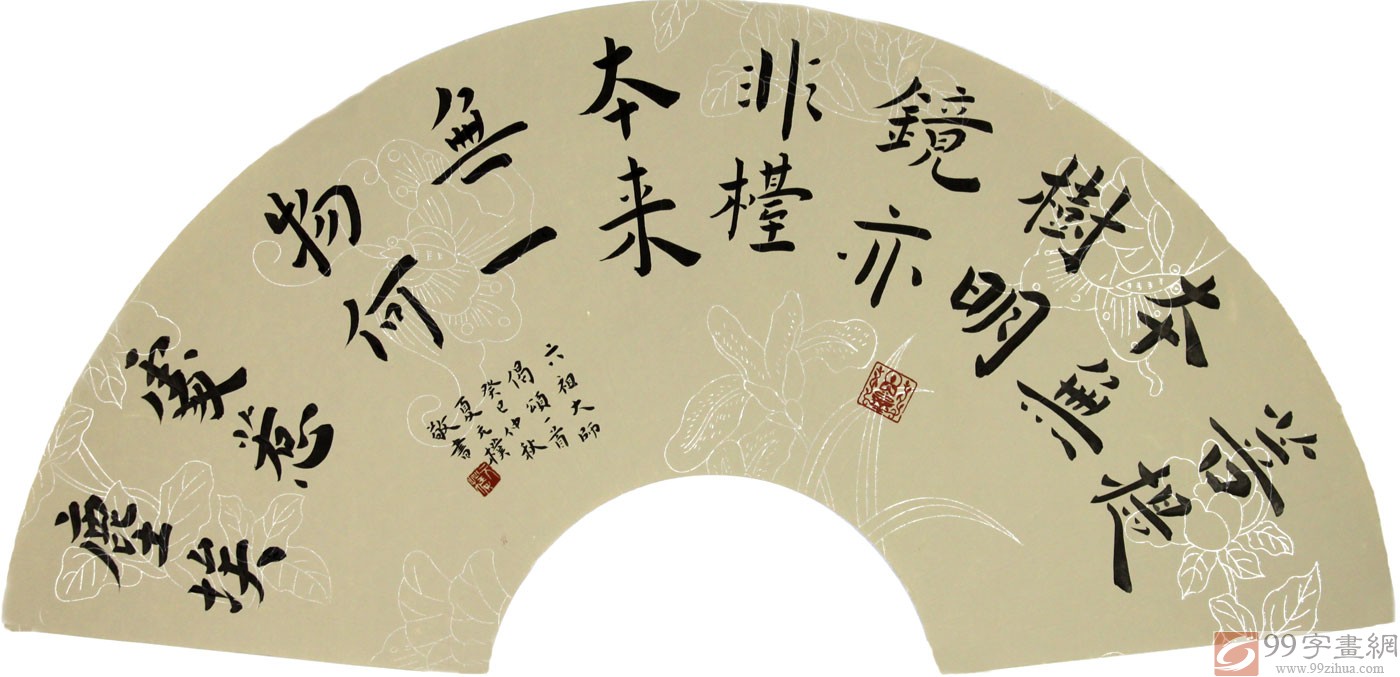 菩提
本無
樹明
鏡亦
非檯
本来
無一
物何
處惹
塵埃
六祖大師
偈頌一首
癸巳仲秋
夏元樸
敬書
99字畫網
www.99zihua.com